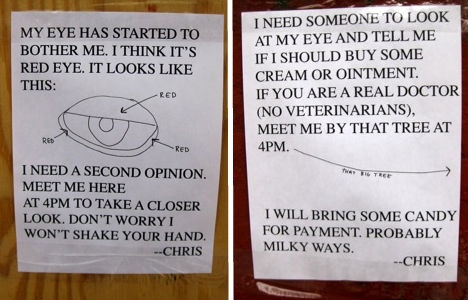 MY EYE HAS STARTED TO
BOTHER ME. I THINK IT'S
RED EYE. IT LOOKS LIKE
THIS:
RED
RED
RED
I NEED A SECOND OPINION.
MEET ME HERE
AT 4PM TO TAKE A CLOSER
LOOK. DON'T WORRY I
WON'T SHAKE YOUR HAND.
--CHRIS
I NEED SOMEONE TO LOOK
AT MY EYE AND TELL ME
IF I SHOULD BUY SOME
CREAM OR OINTMENT.
IF YOU ARE A REAL DOCTOR
(NO VETERINARIANS),
MEET ME BY THAT TREE AT
4PM.
THAT BIG TREE
I WILL BRING SOME CANDY
FOR PAYMENT. PROBABLY
MILKY WAYS.
--CHRIS